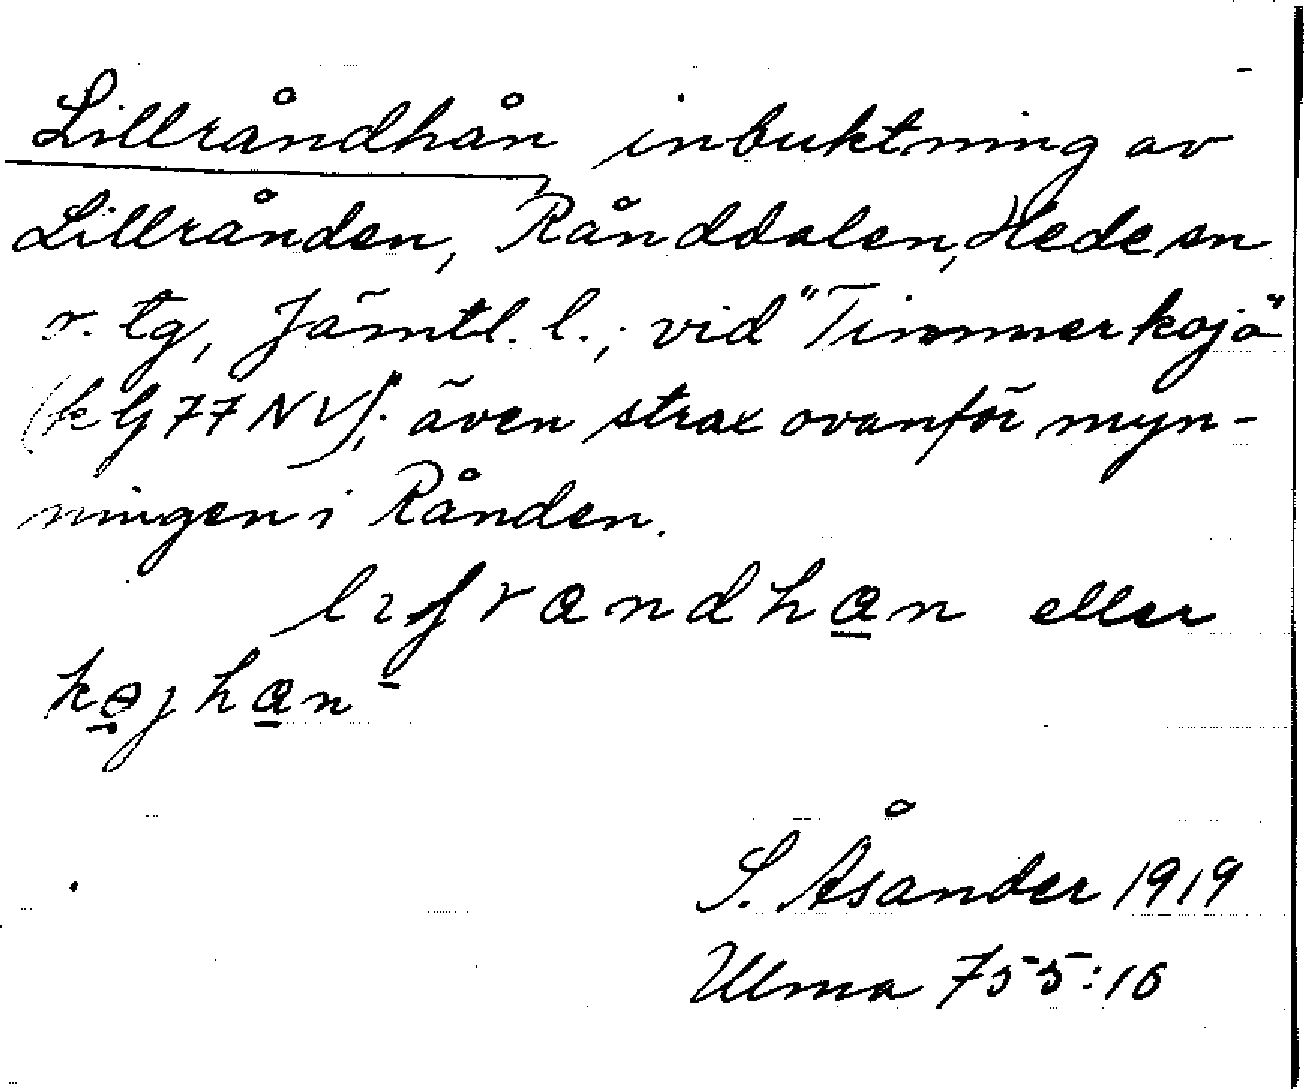 Lillråndhån inbuktning av
Lillrånden, Rånddalen, Hede sn
o. tg, Jämtl. l.; vid "Timmerkoja"
(k G 77 NV); även strax ovanför myn-
ningen i Rånden.
eller
S. Åsander 1919
Ulma 755:10